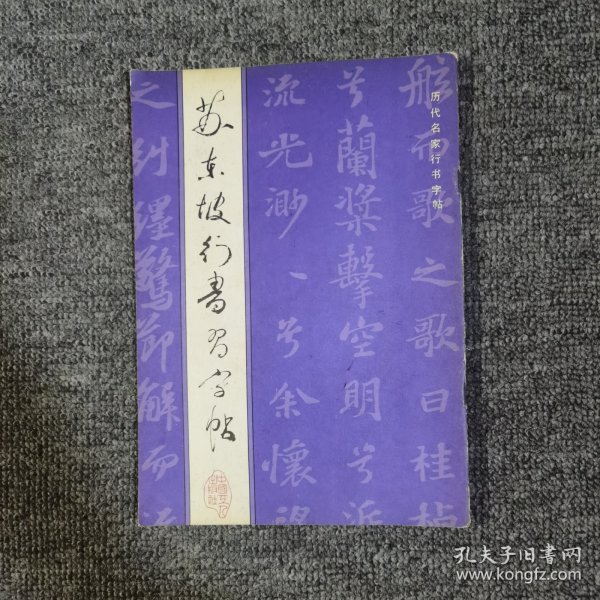 历代名家行书字帖
舷而歌之歌曰桂棹
兮蘭槳擊空明兮泝
流光渺〻兮余懷望
苏东坡行書習字帖
之糾纏驚節解而流
孔夫子旧书网
www.kongfz.com